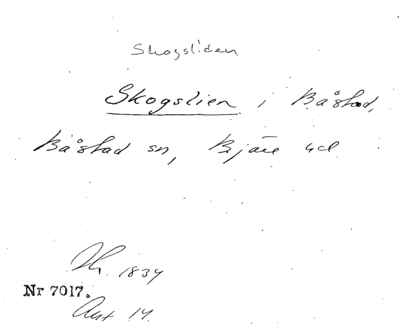 Skogsliden
Skogslien i Båstad,
Båstad sn, Bjäre hd
Hr. 1834
Nr 7017.
Ant 14.